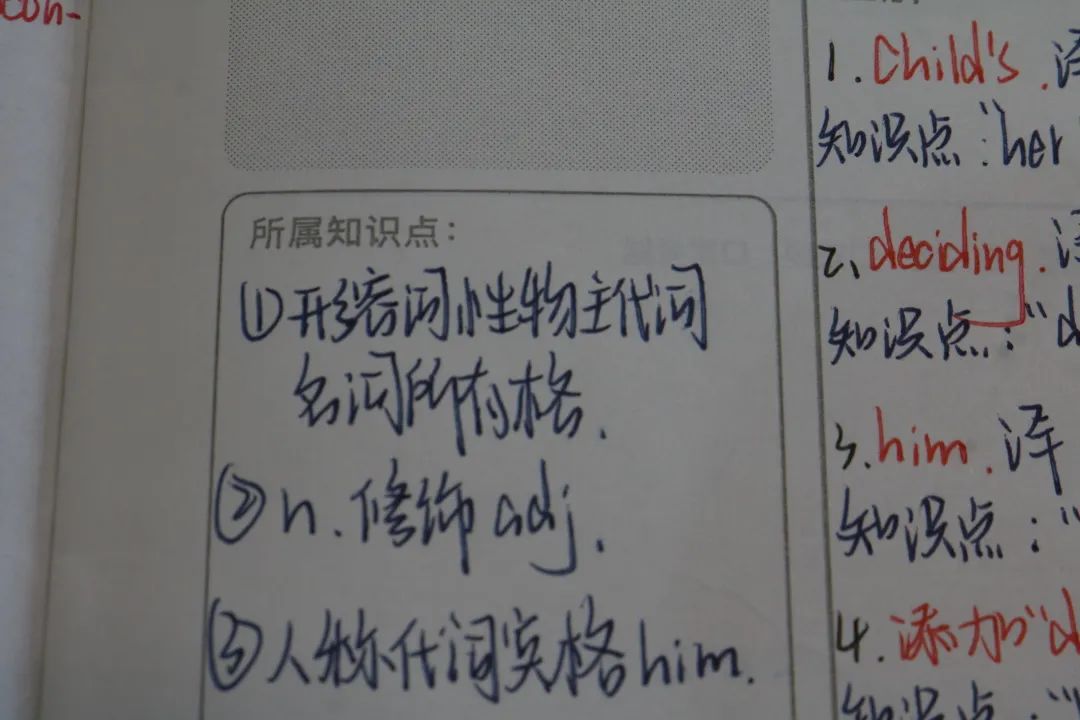 con-
所属知识点:
①形容词性物主代词
名词所有格.
②n.修饰adj.
③人称代词宾格him.
1.Child's.译
知识点:"her
2、deciding.译
知识点:"d
3.him.译
知识点:"
4.添加"d
知识点:"